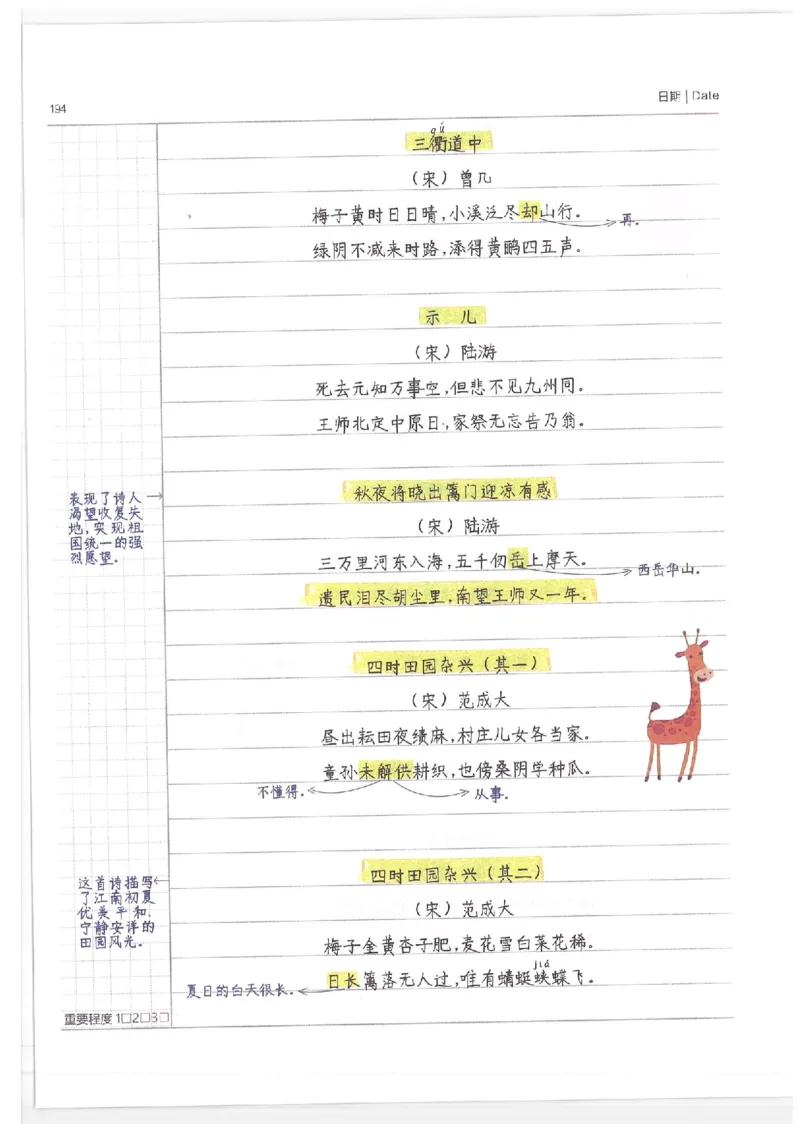 194
日期 | Date
qú
三衢道中
（宋）曾几
梅子黄时日日晴，小溪泛尽却山行。
再.
绿阴不减来时路，添得黄鹂四五声。
示 儿
（宋）陆游
死去元知万事空，但悲不见九州同。
王师北定中原日，家祭无忘告乃翁。
秋夜将晓出篱门迎凉有感
表现了诗人
渴望收复失
地，实现祖
国统一的强
烈愿望.
（宋）陆游
三万里河东入海，五千仞岳上摩天。
西岳华山.
遗民泪尽胡尘里，南望王师又一年。
四时田园杂兴（其一）
（宋）范成大
昼出耘田夜绩麻，村庄儿女各当家。
童孙未解供耕织，也傍桑阴学种瓜。
不懂得.
从事.
四时田园杂兴（其二）
这首诗描写
了江南初夏
优美平和、
宁静安详的
田园风光.
（宋）范成大
梅子金黄杏子肥，麦花雪白菜花稀。
jiá
日长篱落无人过，唯有蜻蜓蛱蝶飞。
夏日的白天很长.
重要程度 1□2□3□